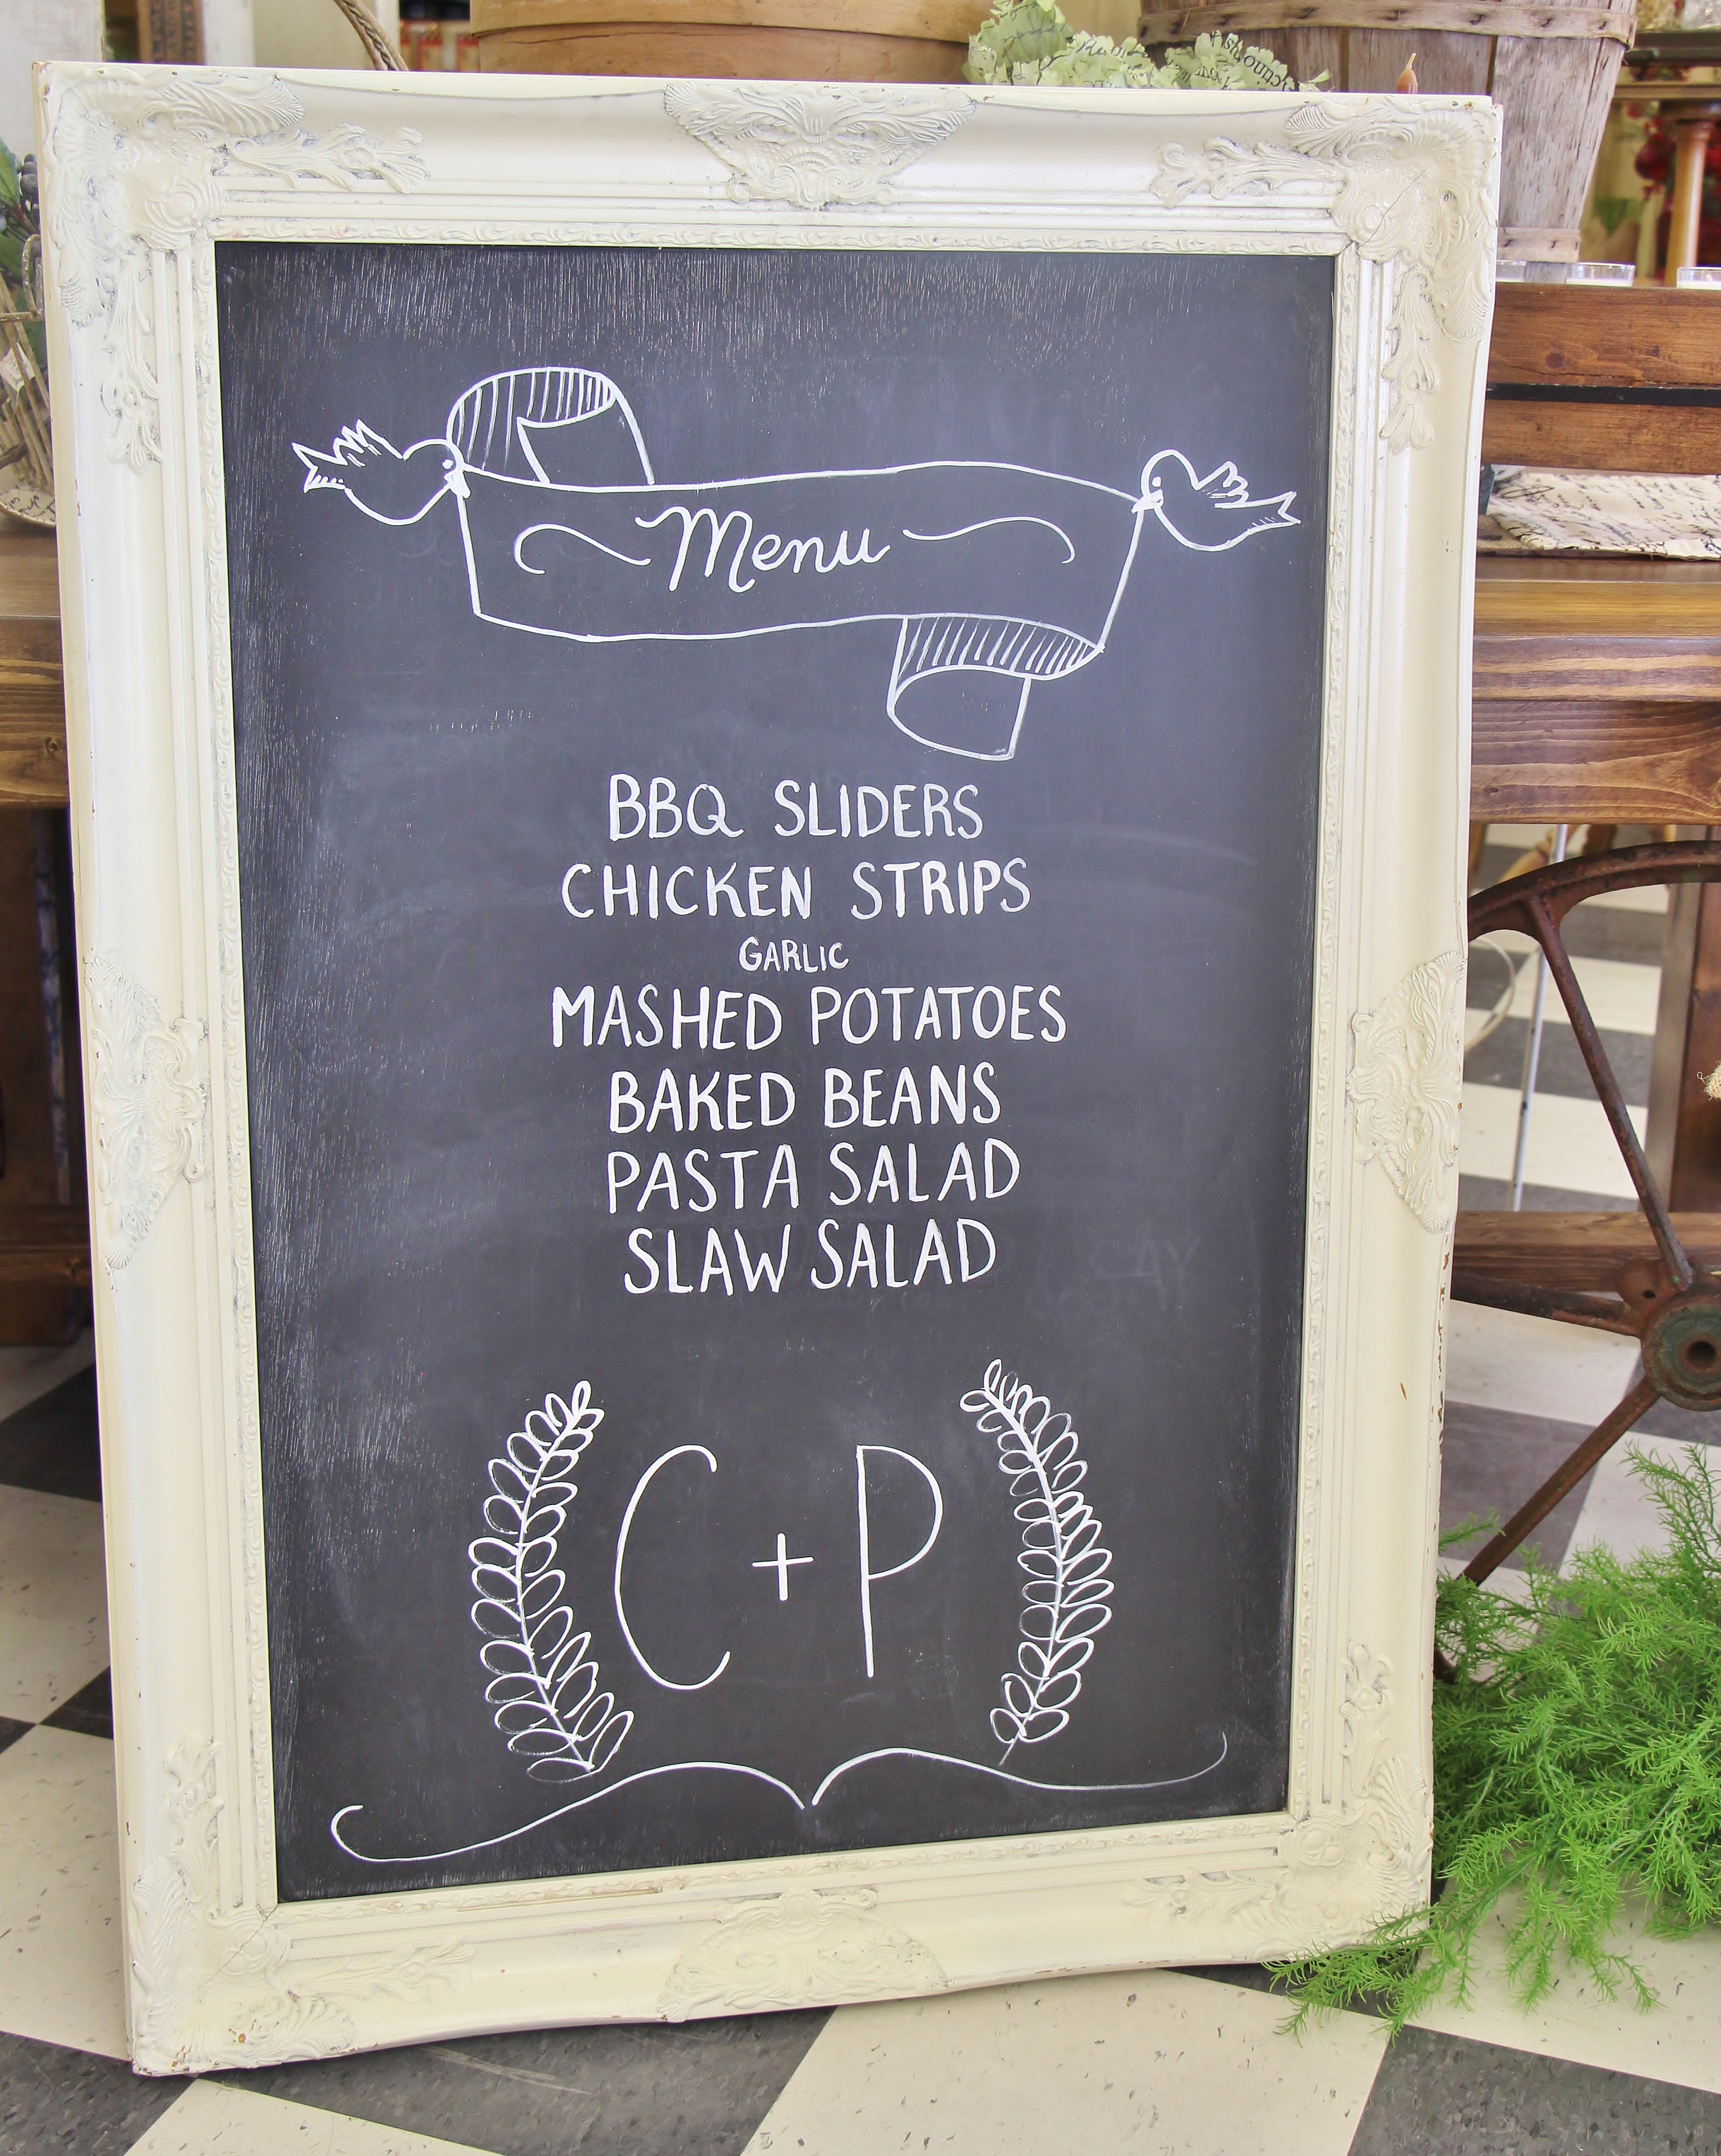 Menu
BBQ SLIDERS
CHICKEN STRIPS
GARLIC
MASHED POTATOES
BAKED BEANS
PASTA SALAD
SLAW SALAD
C + P